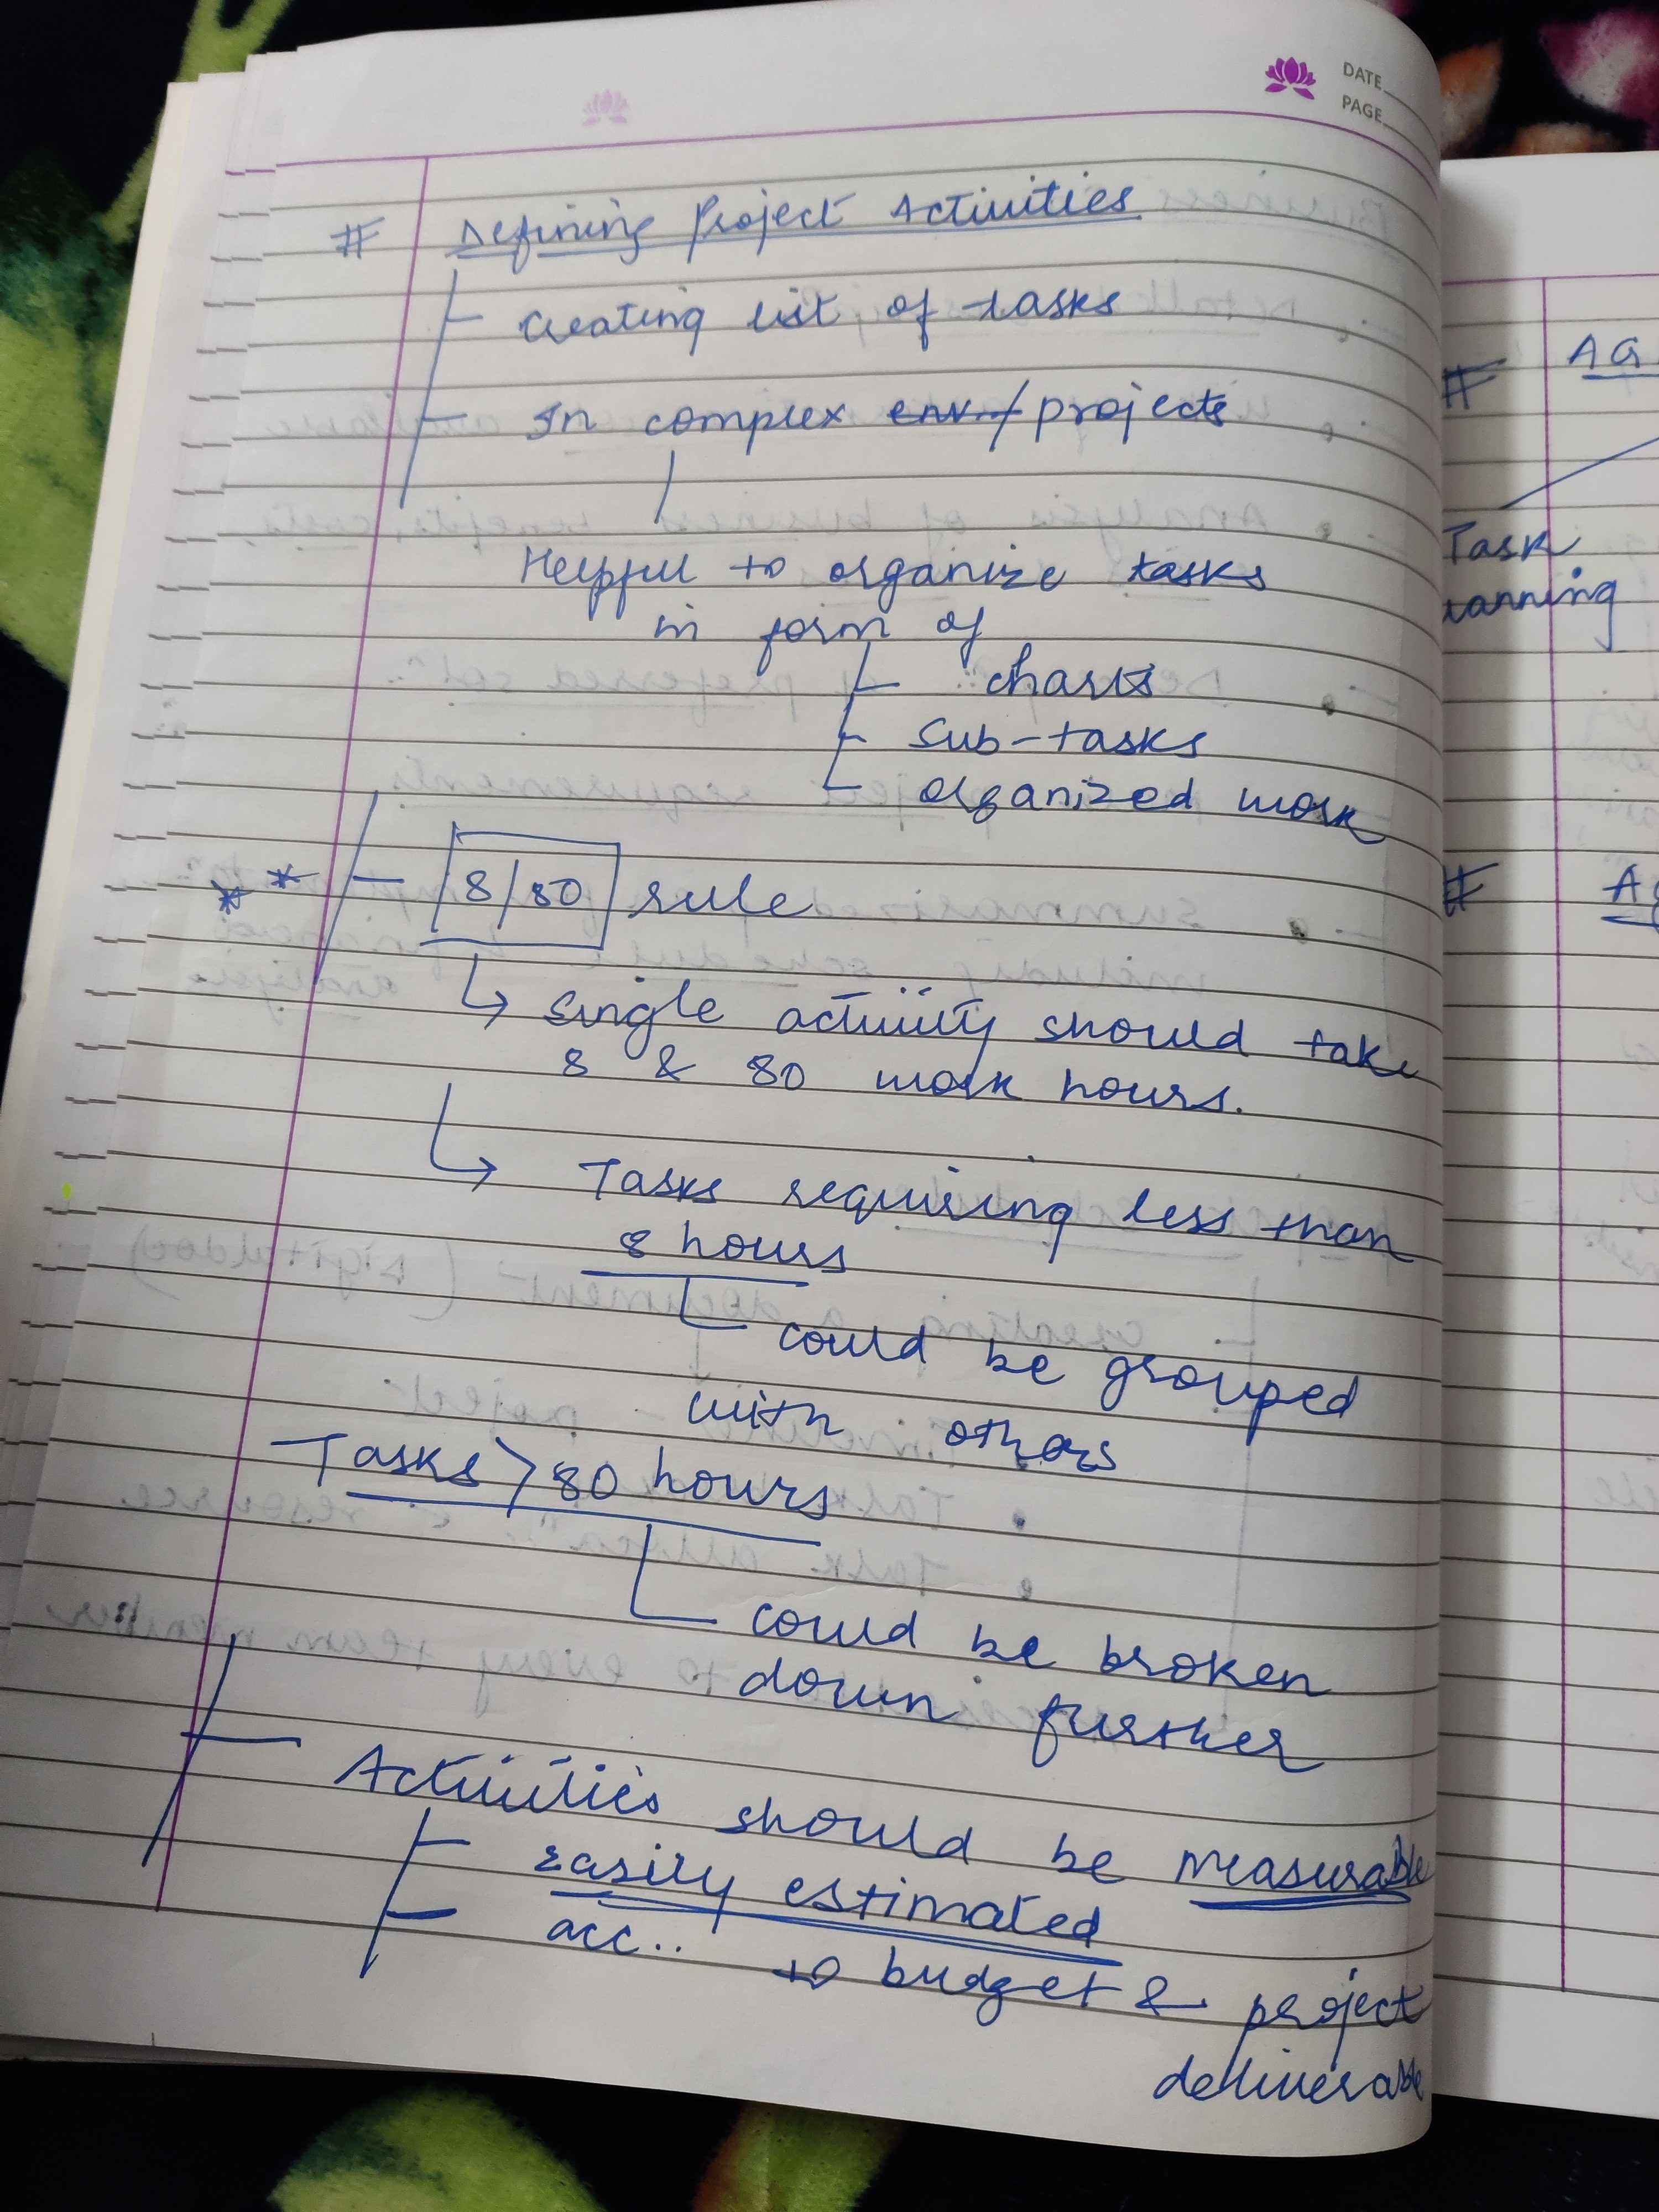 DATE
PAGE
# Defining Project Activities
Creating list of tasks
In complex env./projects
Helpful to organize tasks
in form of
charts
Sub-tasks
organized work
** 8/80 rule
Single activity should take
8 & 80 work hours.
Tasks requiring less than
8 hours
could be grouped
with others
Tasks > 80 hours
could be broken
down further
Activities should be measurable
easily estimated
acc.. to budget & project
deliverable
# AG
Task
# AG